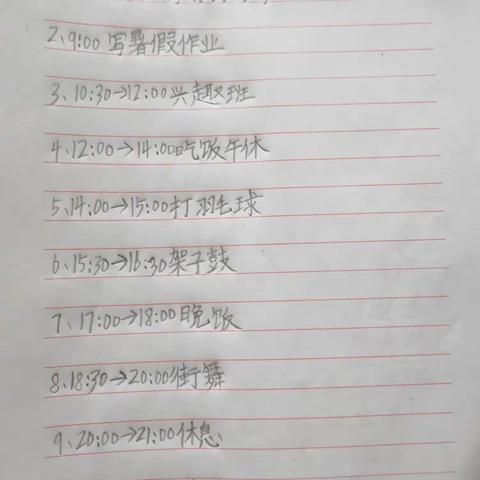 2、9:00 写暑假作业
3、10:30→12:00兴趣班
4、12:00→14:00吃饭午休
5、14:00→15:00打羽毛球
6、15:30→16:30架子鼓
7、17:00→18:00晚饭
8、18:30→20:00街舞
9、20:00→21:00休息